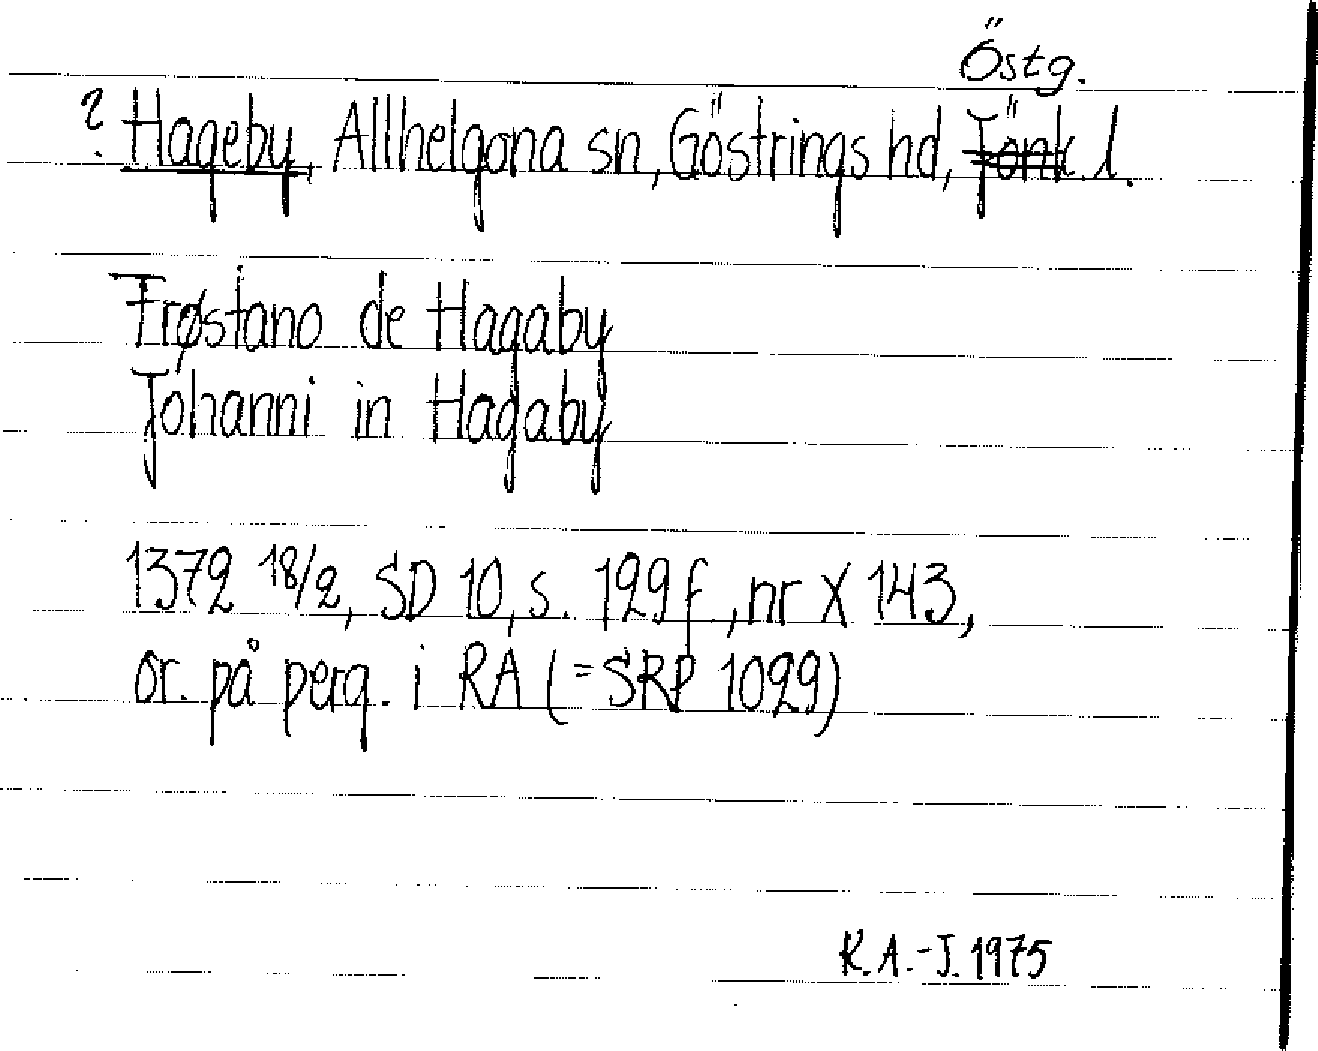 Östg.
? Hageby, Allhelgona sn, Göstrings hd, Jönk. l.
Frøstano de Hagaby
Johanni in Hagaby
1372 18/2, SD 10, s. 129 f., nr X 143,
or. på perg. i RA (=SRP 1029)
K.A.-J. 1975